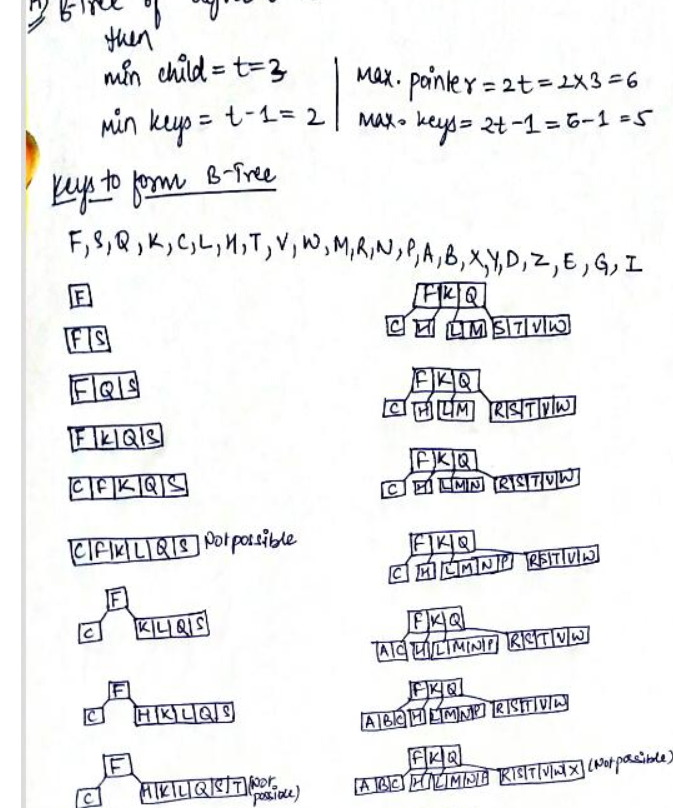 B-Tree of
then
min child = t=3
min keys = t-1 = 2
Max. pointer = 2t = 2x3 = 6
Max. keys = 2t-1 = 6-1 = 5
Keys to form B-Tree
F,S,Q,K,C,L,H,T,V,W,M,R,N,P,A,B,X,Y,D,Z,E,G,I
F
F S
F Q S
F K Q S
C F K Q S
C F K L Q S Not possible
F
C K L Q S
F
C H K L Q S
F
C H K L Q S T (Not possible)
F K Q
C H L M S T V W
F K Q
C H L M R S T V W
F K Q
C H L M N R S T V W
F K Q
C H L M N P R S T V W
F K Q
A C H L M N P R S T V W
F K Q
A B C H L M N P R S T V W
F K Q
A B C H L M N P R S T V W X (Not possible)